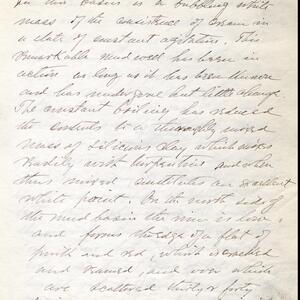 in this basin is a bubbling white
mass of the consistence of cream in
a state of constant agitation. This
remarkable mud well has been in
action as long as it has been known
and has undergone but little change.
The constant boiling has reduced
the contents to a thoroughly mixed
mass of silicious clay which mixes
readily with turpentine and when
thus mixed constitutes an excellent
white paint. On the north side of
the mud basin the rim is low
and forms the edge of a flat of
pink and red, which is cracked
and seamed, and over which
are scattered thirty or forty